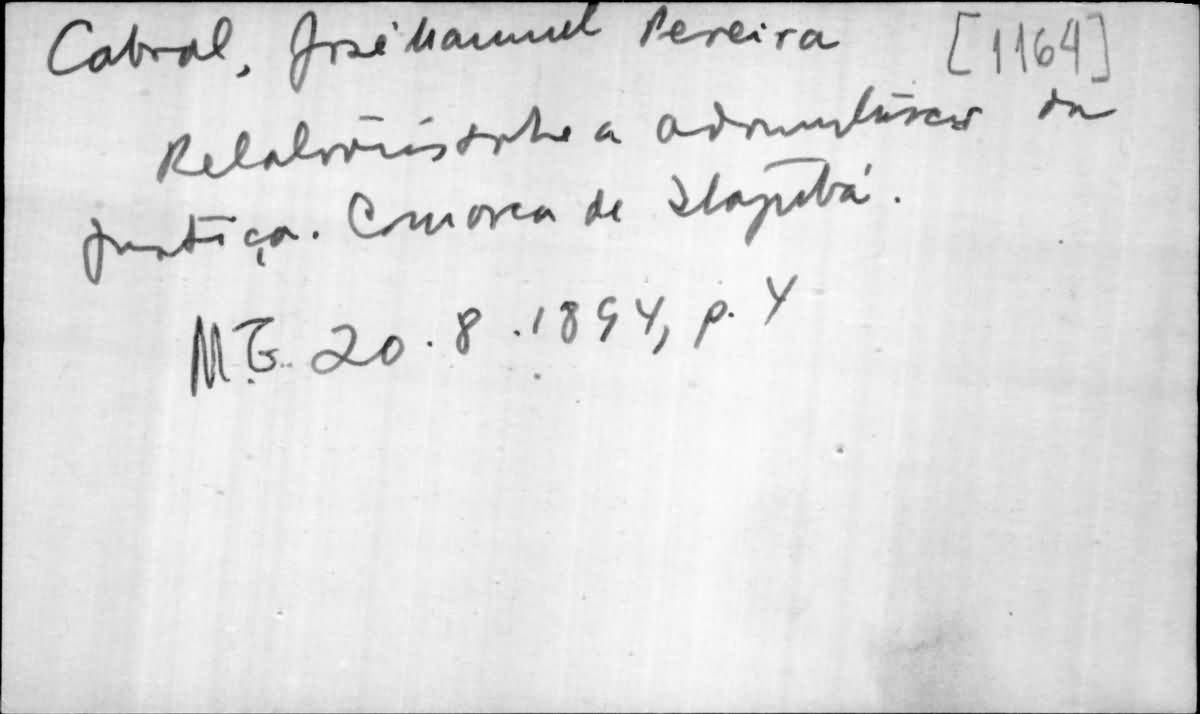 Cabral, José Manuel Pereira [1164]
Relatório sobre a administração da
justiça. Comarca de Itajubá.
M.G. 20.8.1894, p. 4